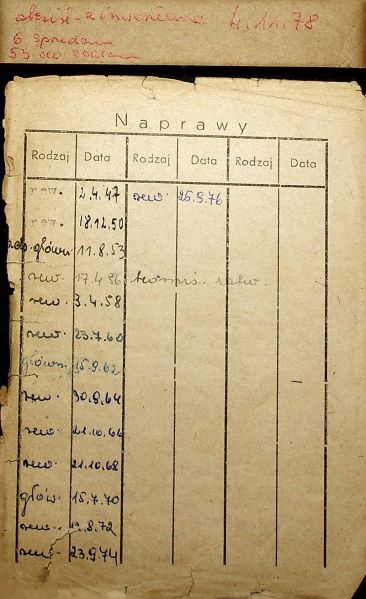 4.11.78
6
53
Naprawy
Rodzaj Data Rodzaj Data Rodzaj Data
rew. 2.4.47 rew. 26.9.76
rew. 18.12.50
główn. 11.8.53
rew. 17.4.56
rew. 3.4.58
rew. 23.7.60
główn. 15.9.62
rew. 30.9.64
rew. 21.10.66
rew. 21.10.68
głów. 15.7.70
rew. 8.72
rew. 23.9.74